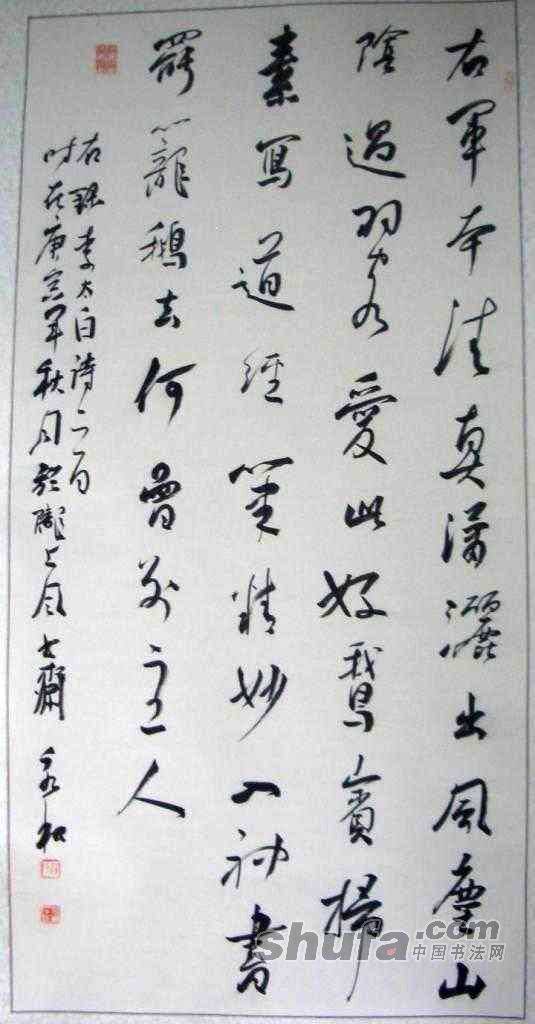 右軍本清真瀟灑出風塵山
陰過羽客愛此好鵞賓掃
素寫道經筆精妙入神書
罷籠鵝去何曾別主人
右録李太白詩一首
时在庚寅年秋月於隴上齋 永
shufa.com
中国书法网